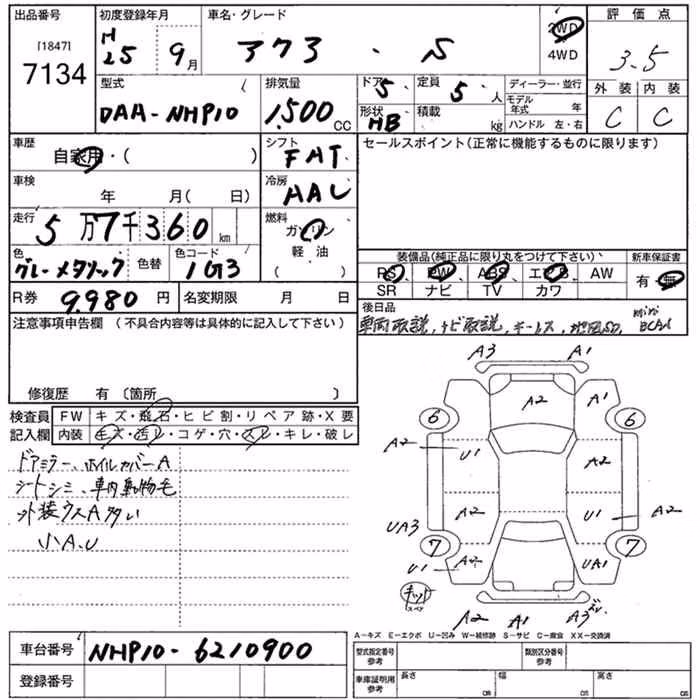 出品番号 初度登録年月 車名・グレード 2WD 評価点
[1847] H
7134 25 9月 アクア . S 4WD 3.5
型式 排気量 ドア 定員 ディーラー・並行 外装 内装
DAA-NHP10 1,500 CC 5 5 人 モデル年式 年 C C
形状 HB 積載 kg ハンドル 左・右
車歴 自家用・( ) シフト FAT セールスポイント(正常に機能するものに限ります)
車検 年 月( 日) 冷房 AAC
走行 5万7千360 km 燃料 ガソリン
軽油
( )
色 グレーメタリック 色替 色コード 1G3 装備品(純正品に限り丸をつけて下さい) 新車保証書
PS PW ABS エアB AW 有・無
R券 9,980 円 名変期限 月 日 SR ナビ TV カワ
注意事項申告欄 (不具合内容等は具体的に記入して下さい) 後日品
車両取説, ナビ取説,
修復歴 有 〔箇所 〕
検査員 FW キズ・飛石・ヒビ割・リペア跡・X要
記入欄 内装 キズ・汚レ・コゲ・穴・スレ・キレ・破レ
ドアミラー、ホイルカバーA
シートシミ、車内動物毛
外装ウスA多い
小A.U
A3 A1
A2 A1
6 6
A2 U1 A2
A2 U1 A2
UA3
7 7
U1 A2 UA1
キット
A2 A1 A3
A－キズ E－エクボ U－凹み W－補修跡 S－サビ C－腐食 XX－交換済
車台番号 NHP10-6210900 型式指定番号 参考 類別区分番号 参考
登録番号 車庫証明用 参考 長さ cm 幅 cm 高さ cm